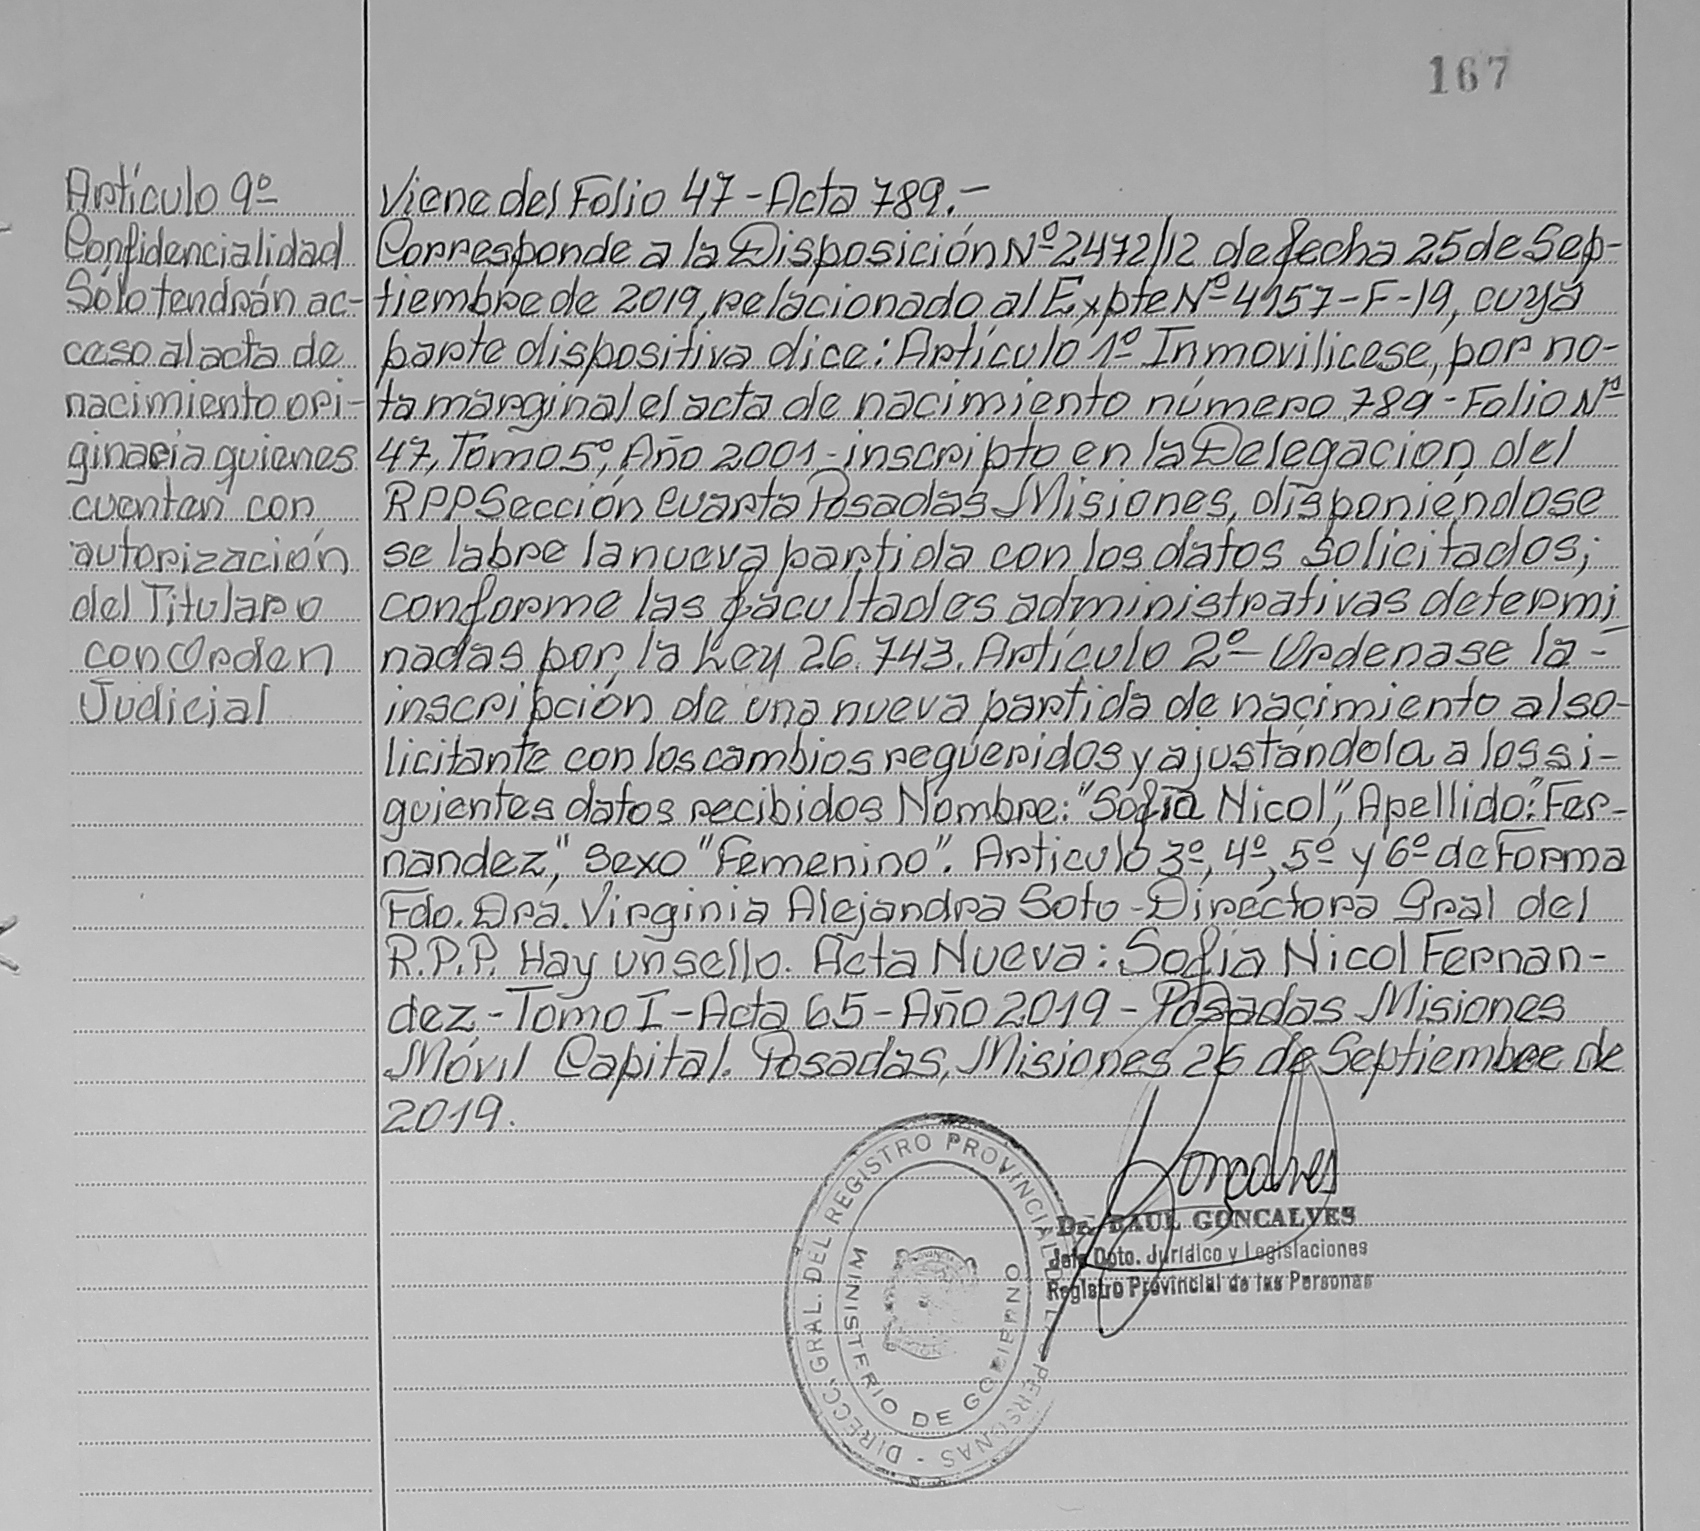 167
Artículo 9º
Confidencialidad
Sólo tendrán ac-
ceso al acta de
nacimiento ori-
ginaria quienes
cuenten con
autorización
del Titular o
con Orden
Judicial
Viene del Folio 47 - Acta 789.-
Corresponde a la Disposición Nº 2472/12 de fecha 25 de Sep-
tiembre de 2019, relacionado al Expte Nº 4157-F-19, cuya
parte dispositiva dice: Artículo 1º Inmovilicese, por no-
ta marginal el acta de nacimiento número 789 - Folio Nº
47, Tomo 5º, Año 2001 - inscripto en la Delegacion del
RPP Sección Cuarta Posadas Misiones, disponiéndose
se labre la nueva partida con los datos solicitados;
conforme las facultades administrativas determi
nadas por la Ley 26.743. Artículo 2º Ordenase la -
inscripción de una nueva partida de nacimiento al so-
licitante con los cambios requeridos y ajustándola a los si-
guientes datos recibidos Nombre: "Sofia Nicol", Apellido: "Fer-
nandez," sexo "Femenino". Articulo 3º, 4º, 5º y 6º de Forma
Fdo. Dra. Virginia Alejandra Soto - Directora Gral del
R.P.P. Hay un sello. Acta Nueva: Sofia Nicol Fernan-
dez - Tomo I - Acta 65 - Año 2019 - Posadas Misiones
Móvil Capital. Posadas, Misiones 26 de Septiembre de
2019.
Goncalves
Dr. RAUL GONCALVES
Jefe Dpto. Jurídico y Legislaciones
Registro Provincial de las Personas
DIRECC. GRAL. DEL REGISTRO PROVINCIAL DE LAS PERSONAS -
MINISTERIO DE GOBIERNO